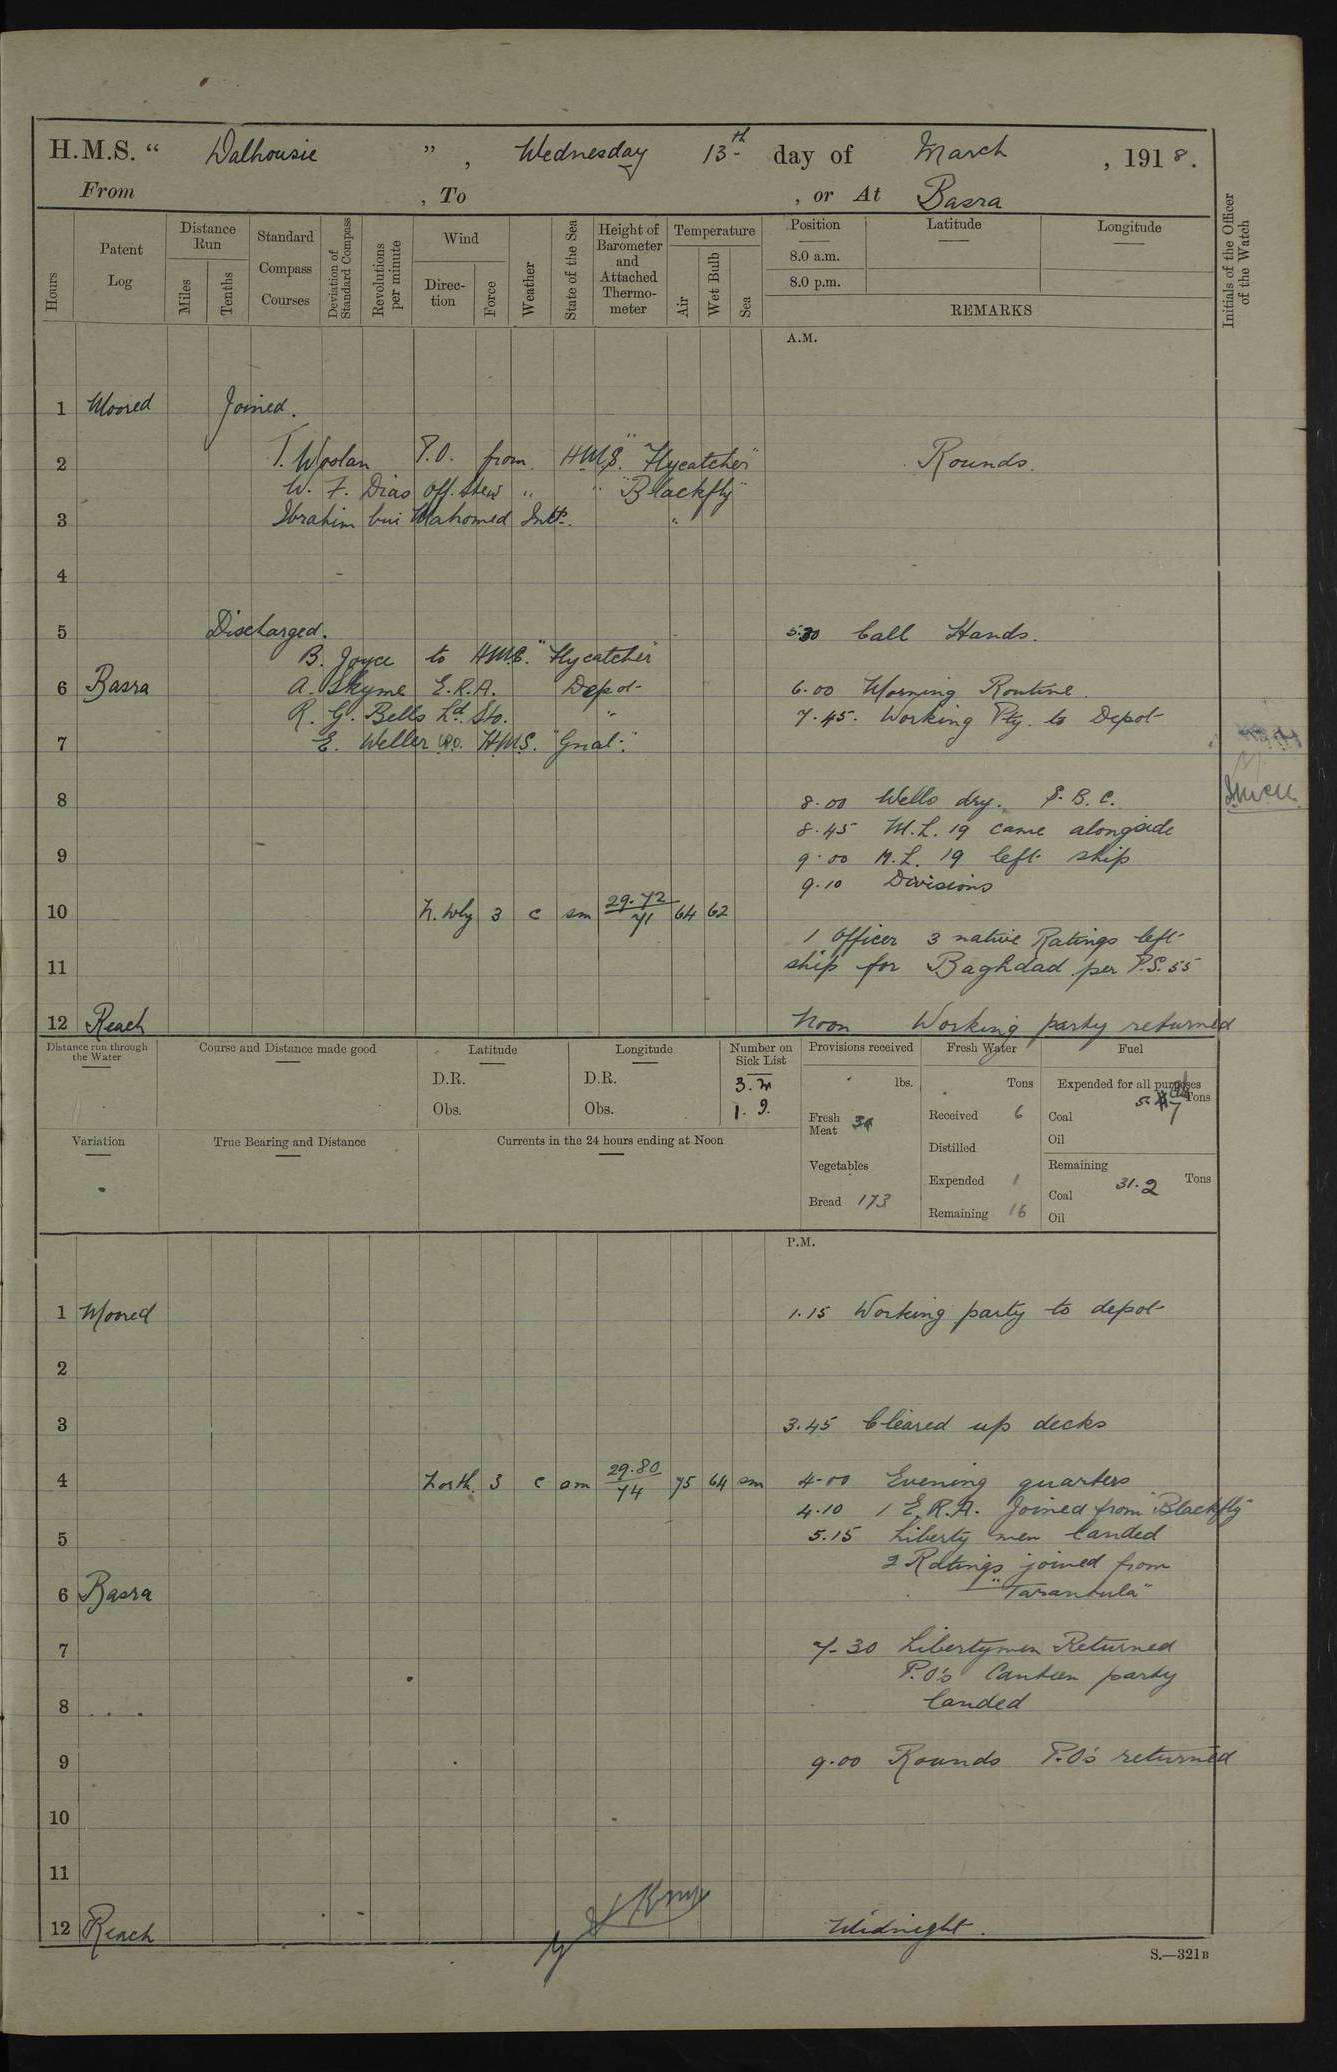 H.M.S. " Dalhousie " , Wednesday 13th day of March , 1918.
From , To , or At Basra
Hours
Patent Log
Distance Run
Miles
Tenths
Standard Compass Courses
Deviation of Standard Compass
Revolutions per minute
Wind
Direction
Force
Weather
State of the Sea
Height of Barometer and Attached Thermometer
Temperature
Air
Wet Bulb
Sea
Position Latitude Longitude
8.0 a.m.
8.0 p.m.
REMARKS
Initials of the Officer of the Watch
A.M.
1 Moored Joined.
2 T. Woolan P.O. from H.M.S. "Flycatcher" Rounds.
W. F. Dias Off. Stew " " "Blackfly"
3 Ibrahim bin Mahomed Intr. "
4
5 Discharged. 5.30 Call Hands.
B. Joyce to H.M.S. "Flycatcher"
6 Basra A. Skyme E.R.A. Depot 6.00 Morning Routine.
R. G. Bells Ld. Sto. " 7.45. Working Pty. to Depot
7 E. Weller P.O. H.M.S. "Gnat."
8 8.00 Wells dry. S.B.C.
8.45 M.L. 19 came alongside
9 9.00 M.L. 19 left ship
9.10 Divisions
10 N.Wly 3 c sm 29.72/71 64 62
1 Officer 3 native Ratings left
11 ship for Baghdad per P.S.55
12 Reach Noon Working party returned
Distance run through the Water
Course and Distance made good
Latitude
D.R.
Obs.
Longitude
D.R.
Obs.
Number on Sick List
3.
1. 9.
Provisions received
lbs.
Fresh Meat
Vegetables
Bread 173
Fresh Water
Tons
Received 6
Distilled
Expended 1
Remaining 16
Fuel
Expended for all purposes
Tons
Coal
Oil
Remaining
Tons
Coal 31.2
Oil
Variation
True Bearing and Distance
Currents in the 24 hours ending at Noon
P.M.
1 Moored 1.15 Working party to depot
2
3 3.45 Cleared up decks
4 North. 3 c sm 29.80/74 75 64 sm 4.00 Evening quarters
4.10 1 E.R.A. Joined from "Blackfly"
5 5.15 Liberty men landed
2 Ratings joined from
6 Basra "Tarantula"
7 7.30 Libertymen Returned
P.O's Canteen party
8 landed
9 9.00 Rounds P.O's returned
10
11
12 Reach Midnight.
S.—321B